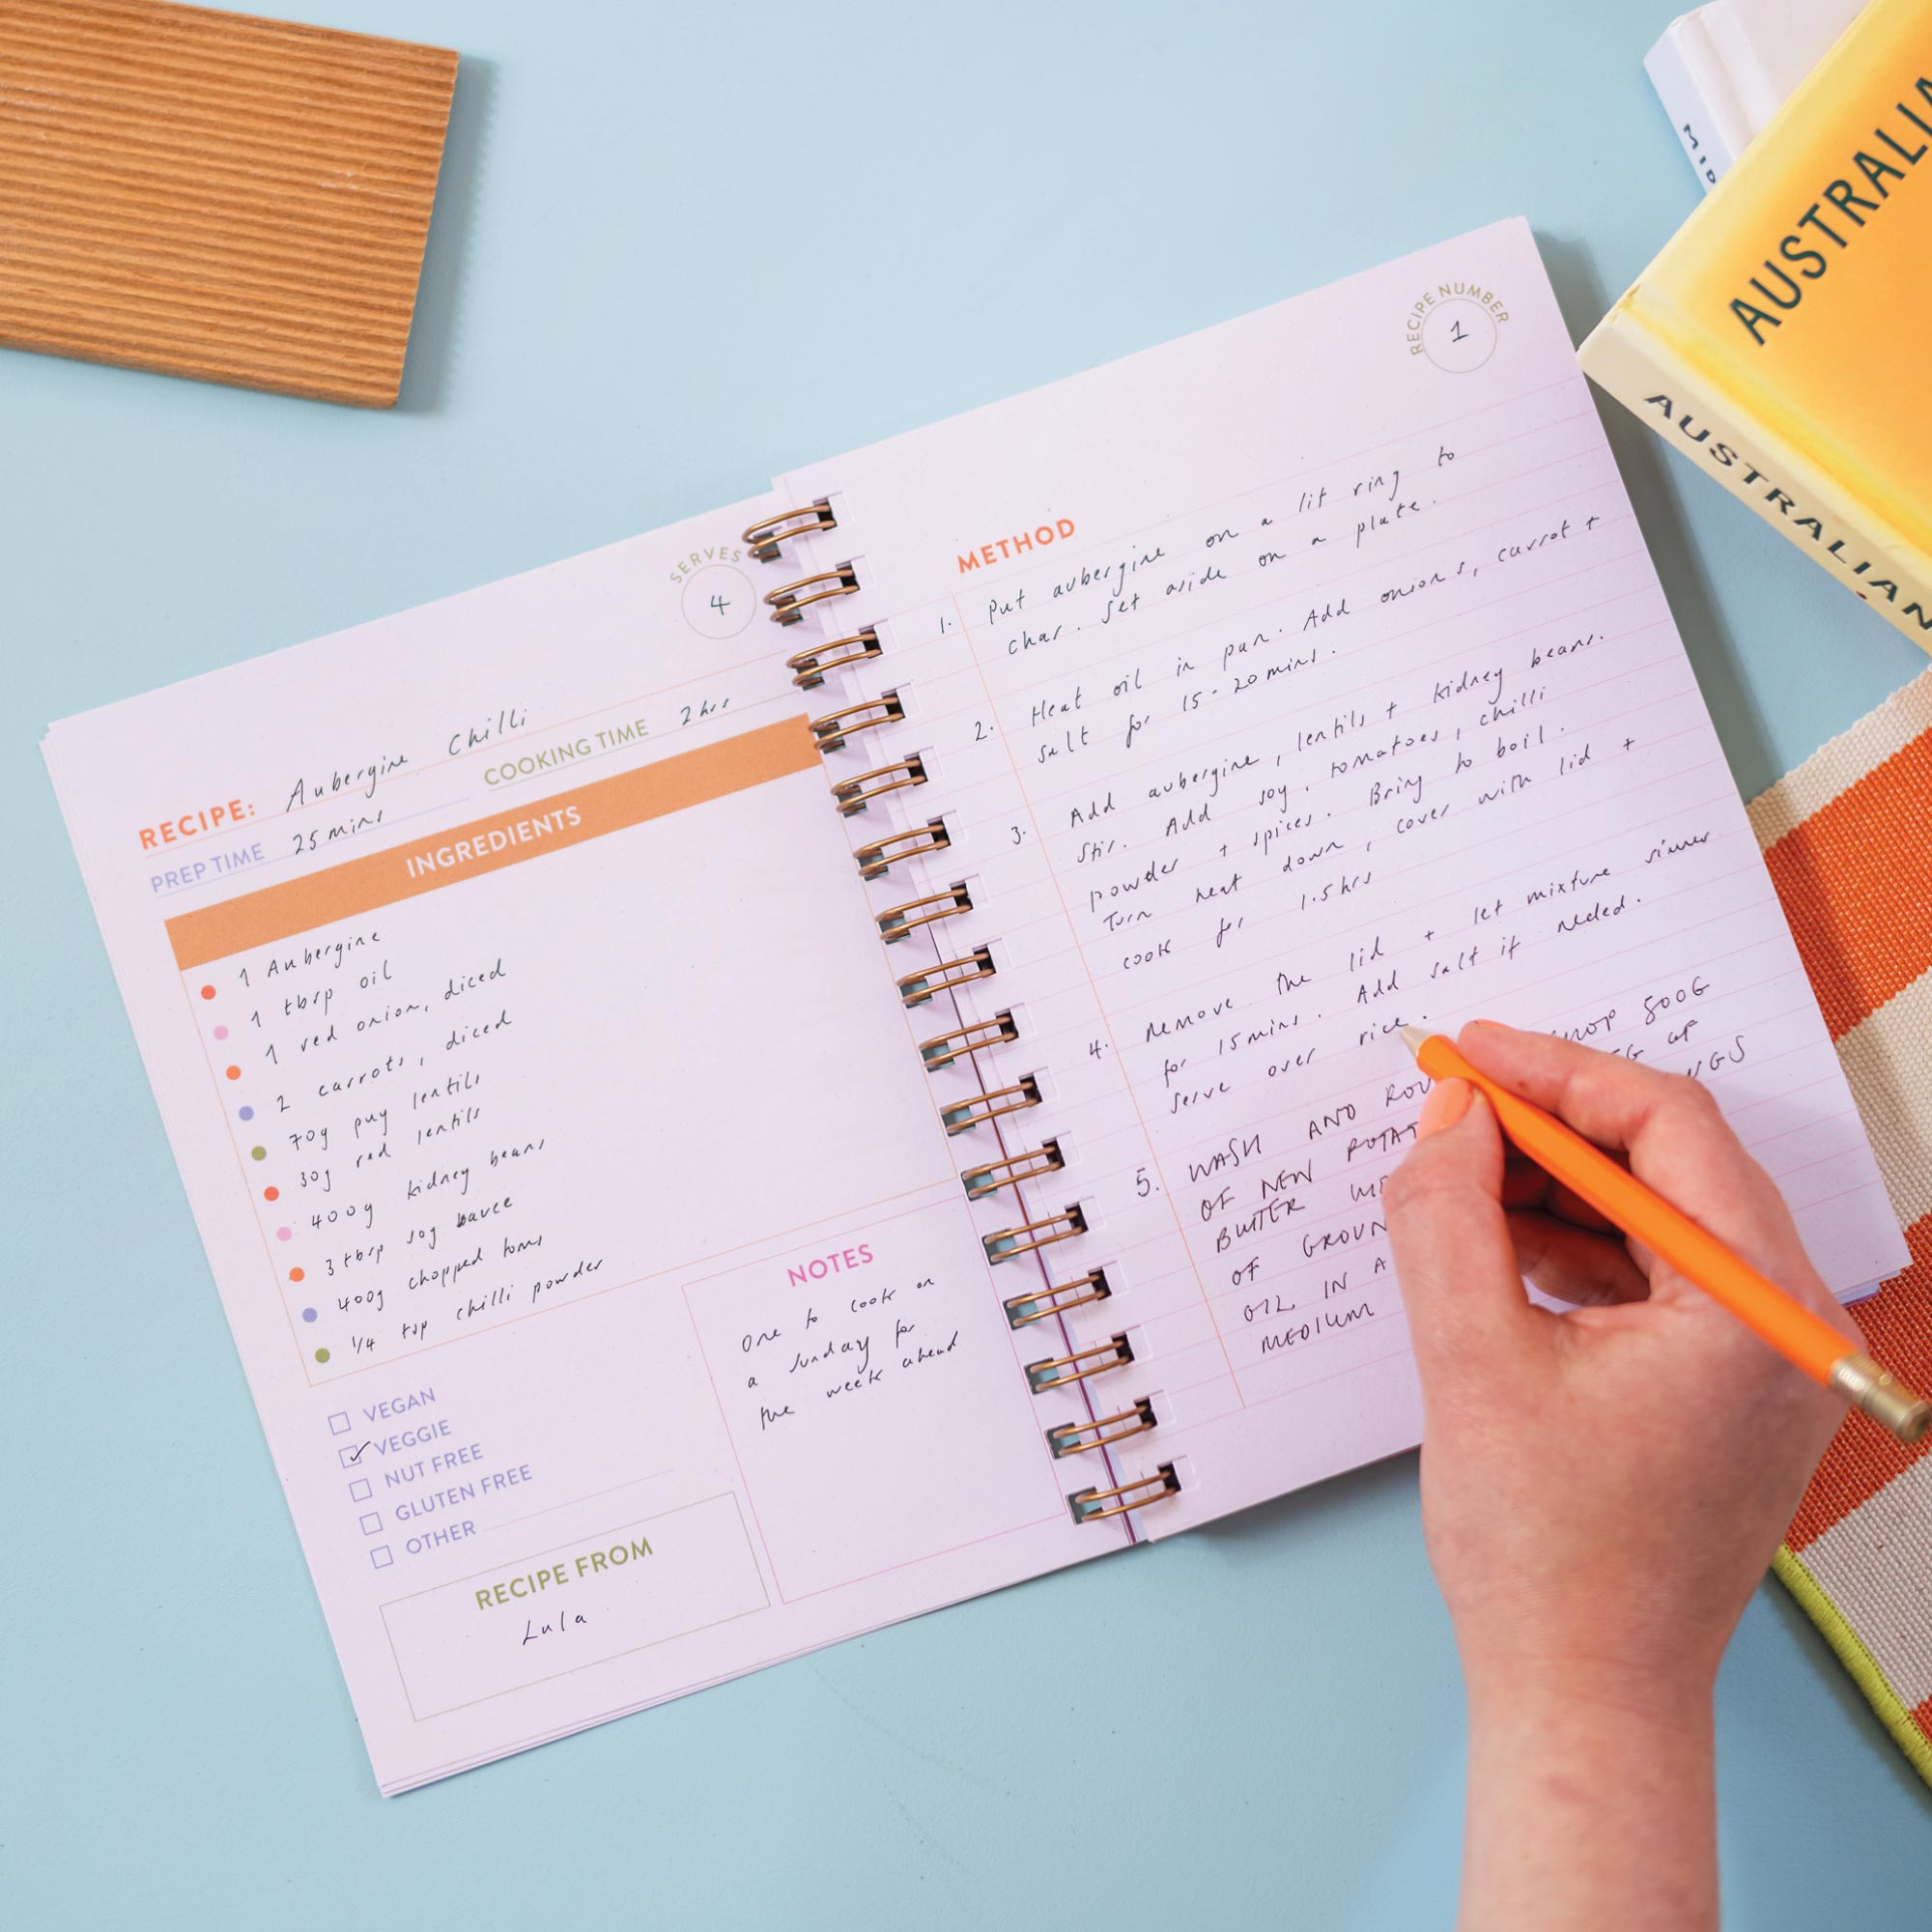 SERVES
4
RECIPE: Aubergine Chilli
PREP TIME 25 mins COOKING TIME 2 hrs
INGREDIENTS
1 Aubergine
1 tbsp oil
1 red onion, diced
2 carrots, diced
70g puy lentils
30g red lentils
400g kidney beans
3 tbsp soy sauce
400g chopped toms
1/4 tsp chilli powder
VEGAN
VEGGIE
NUT FREE
GLUTEN FREE
OTHER
NOTES
One to cook on
a Sunday for
the week ahead
RECIPE FROM
Lula
RECIPE NUMBER
1
METHOD
1. Put aubergine on a lit ring to
char. Set aside on a plate.
2. Heat oil in pan. Add onions, carrot +
salt for 15-20 mins.
3. Add aubergine, lentils + kidney beans.
Stir. Add soy, tomatoes, chilli
powder + spices. Bring to boil.
Turn heat down, cover with lid +
cook for 1.5 hrs
4. Remove the lid + let mixture simmer
for 15 mins. Add salt if needed.
Serve over rice.
5. WASH AND 500G
OF NEW OF
BUTTER
OF
OIL IN A
MEDIUM
AUSTRALIA
AUSTRALIAN